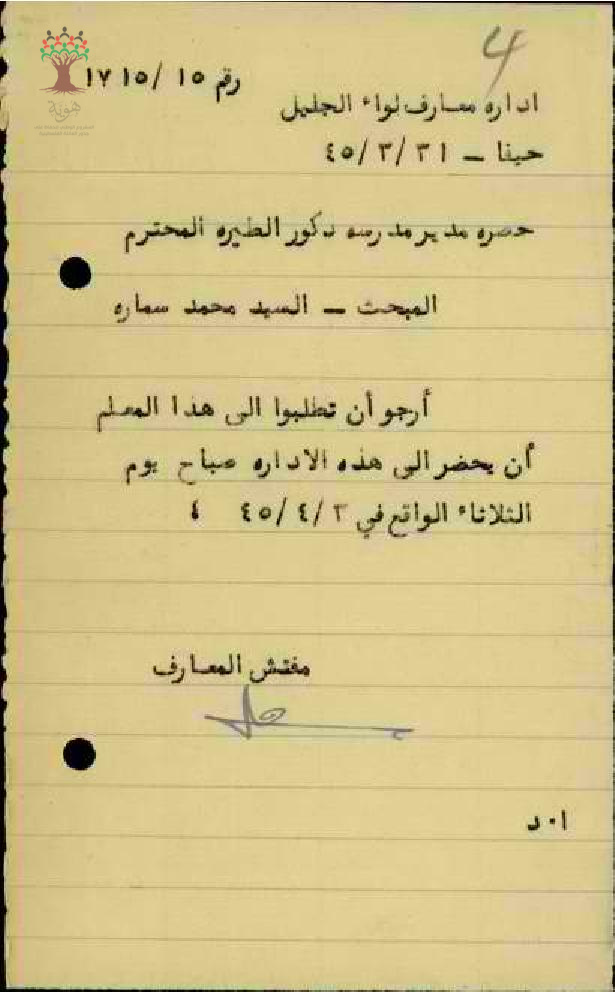 4
رقم ١٥ /١٧١٥
اداره معارف لواء الجليل
حيفا – ٤٥/٣/٣١
هوية
حضره مدير مدرسه ذكور الطيره المحترم
المبحث – السيد محمد سماره
أرجو أن تطلبوا الى هذا المعلم
أن يحضر الى هذه الاداره صباح يوم
الثلاثاء الواقع في ٤٥/٤/٣ ،
مفتش المعارف
ا٠د